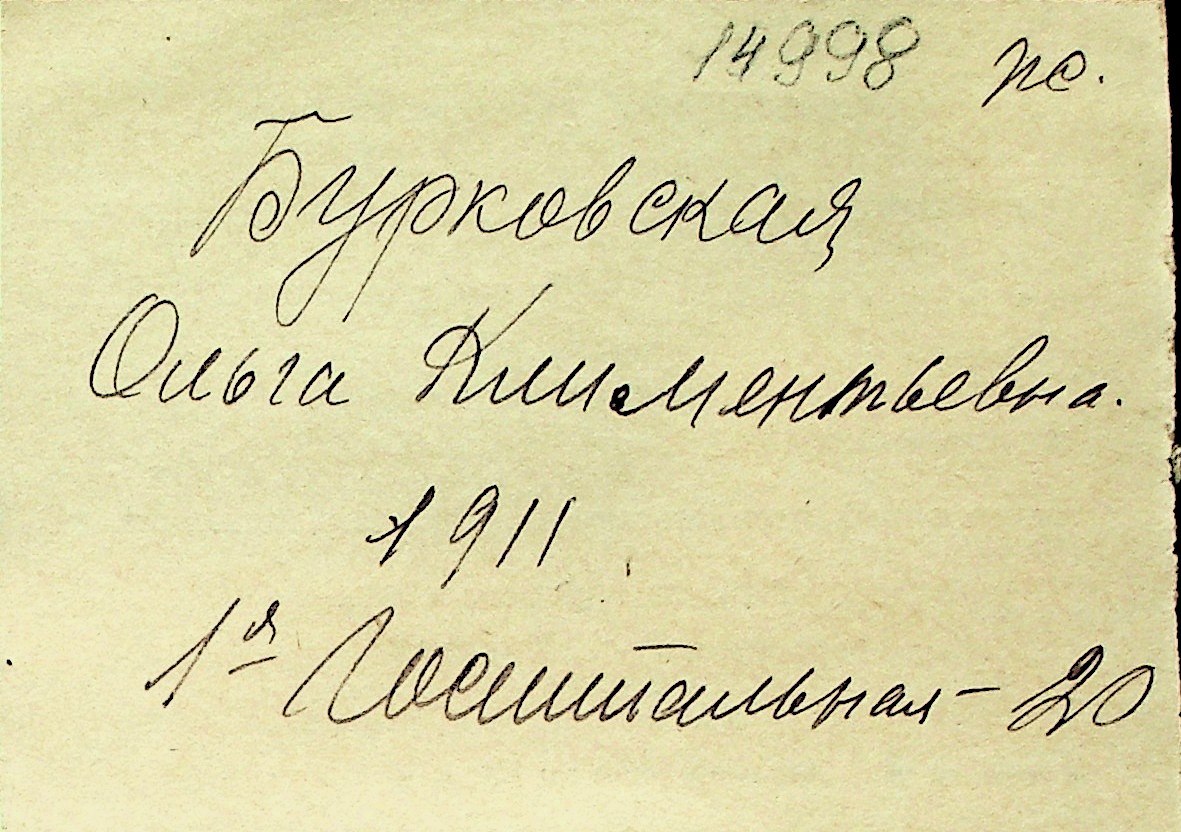 14998 рс.
Бурковская
Ольга Климентьевна.
1911
1я Госпитальная - 20